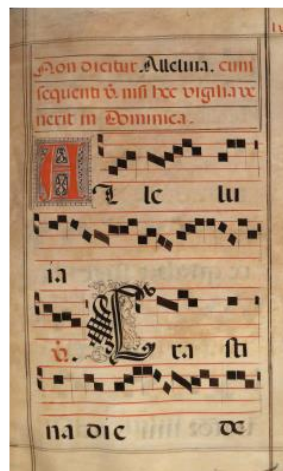 Non dicitur Alleluia. cum
sequenti ℣. nisi hec vigilia ve
nerit in Dominica.
AL le lu
ia
℣. Cra sti
na die de